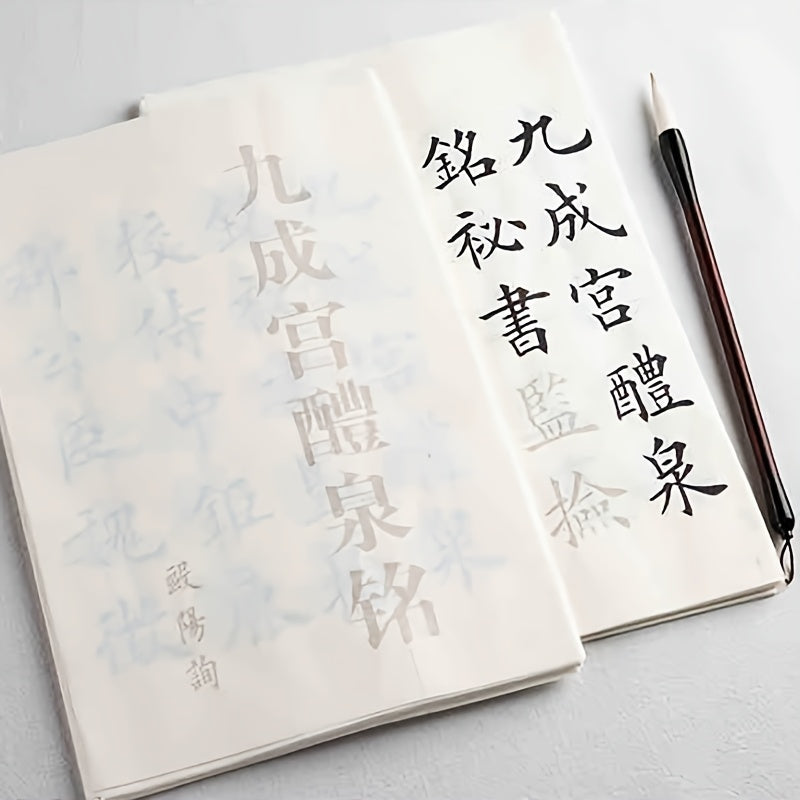 九成宫醴泉
銘祕書監撿
九成宫醴泉铭
歐陽詢
校侍中鉅鹿
郡公臣魏徵